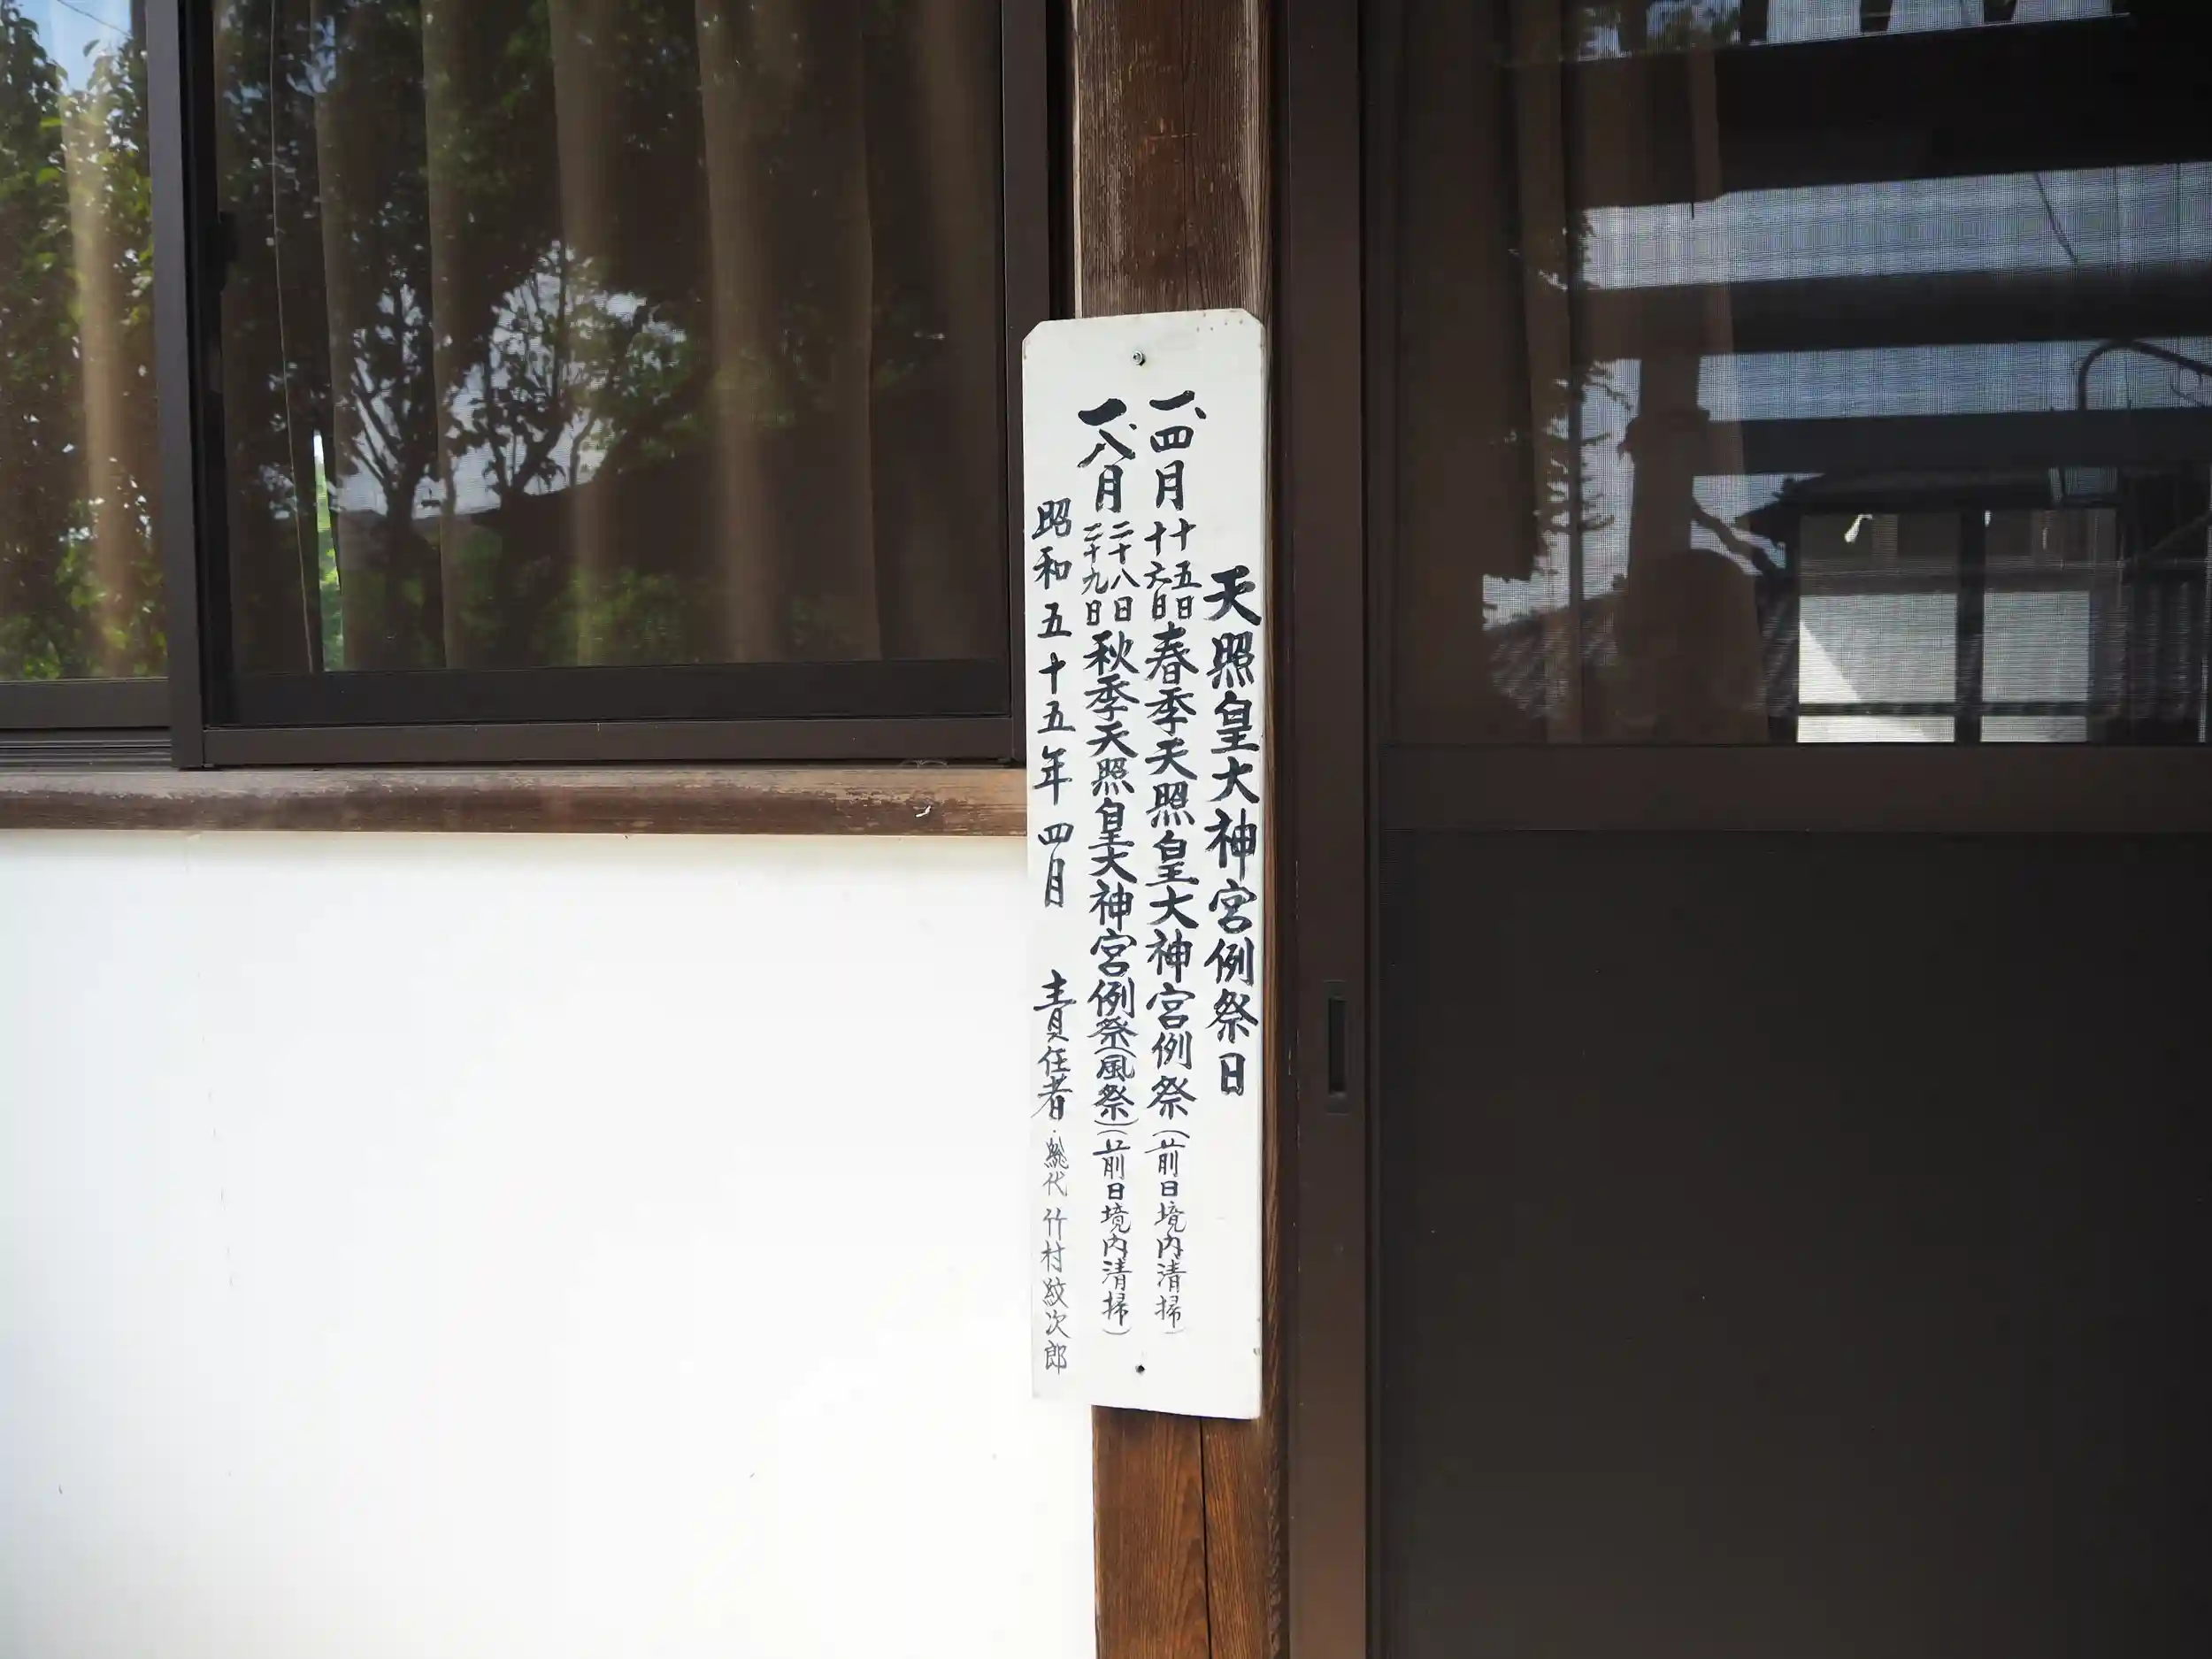 天照皇大神宮例祭日
一、四月十五日十六日春季天照皇大神宮例祭(前日境内清掃)
一、八月二十八日二十九日秋季天照皇大神宮例祭(風祭)(前日境内清掃)
昭和五十五年四月 責任者・総代 竹村紋次郎